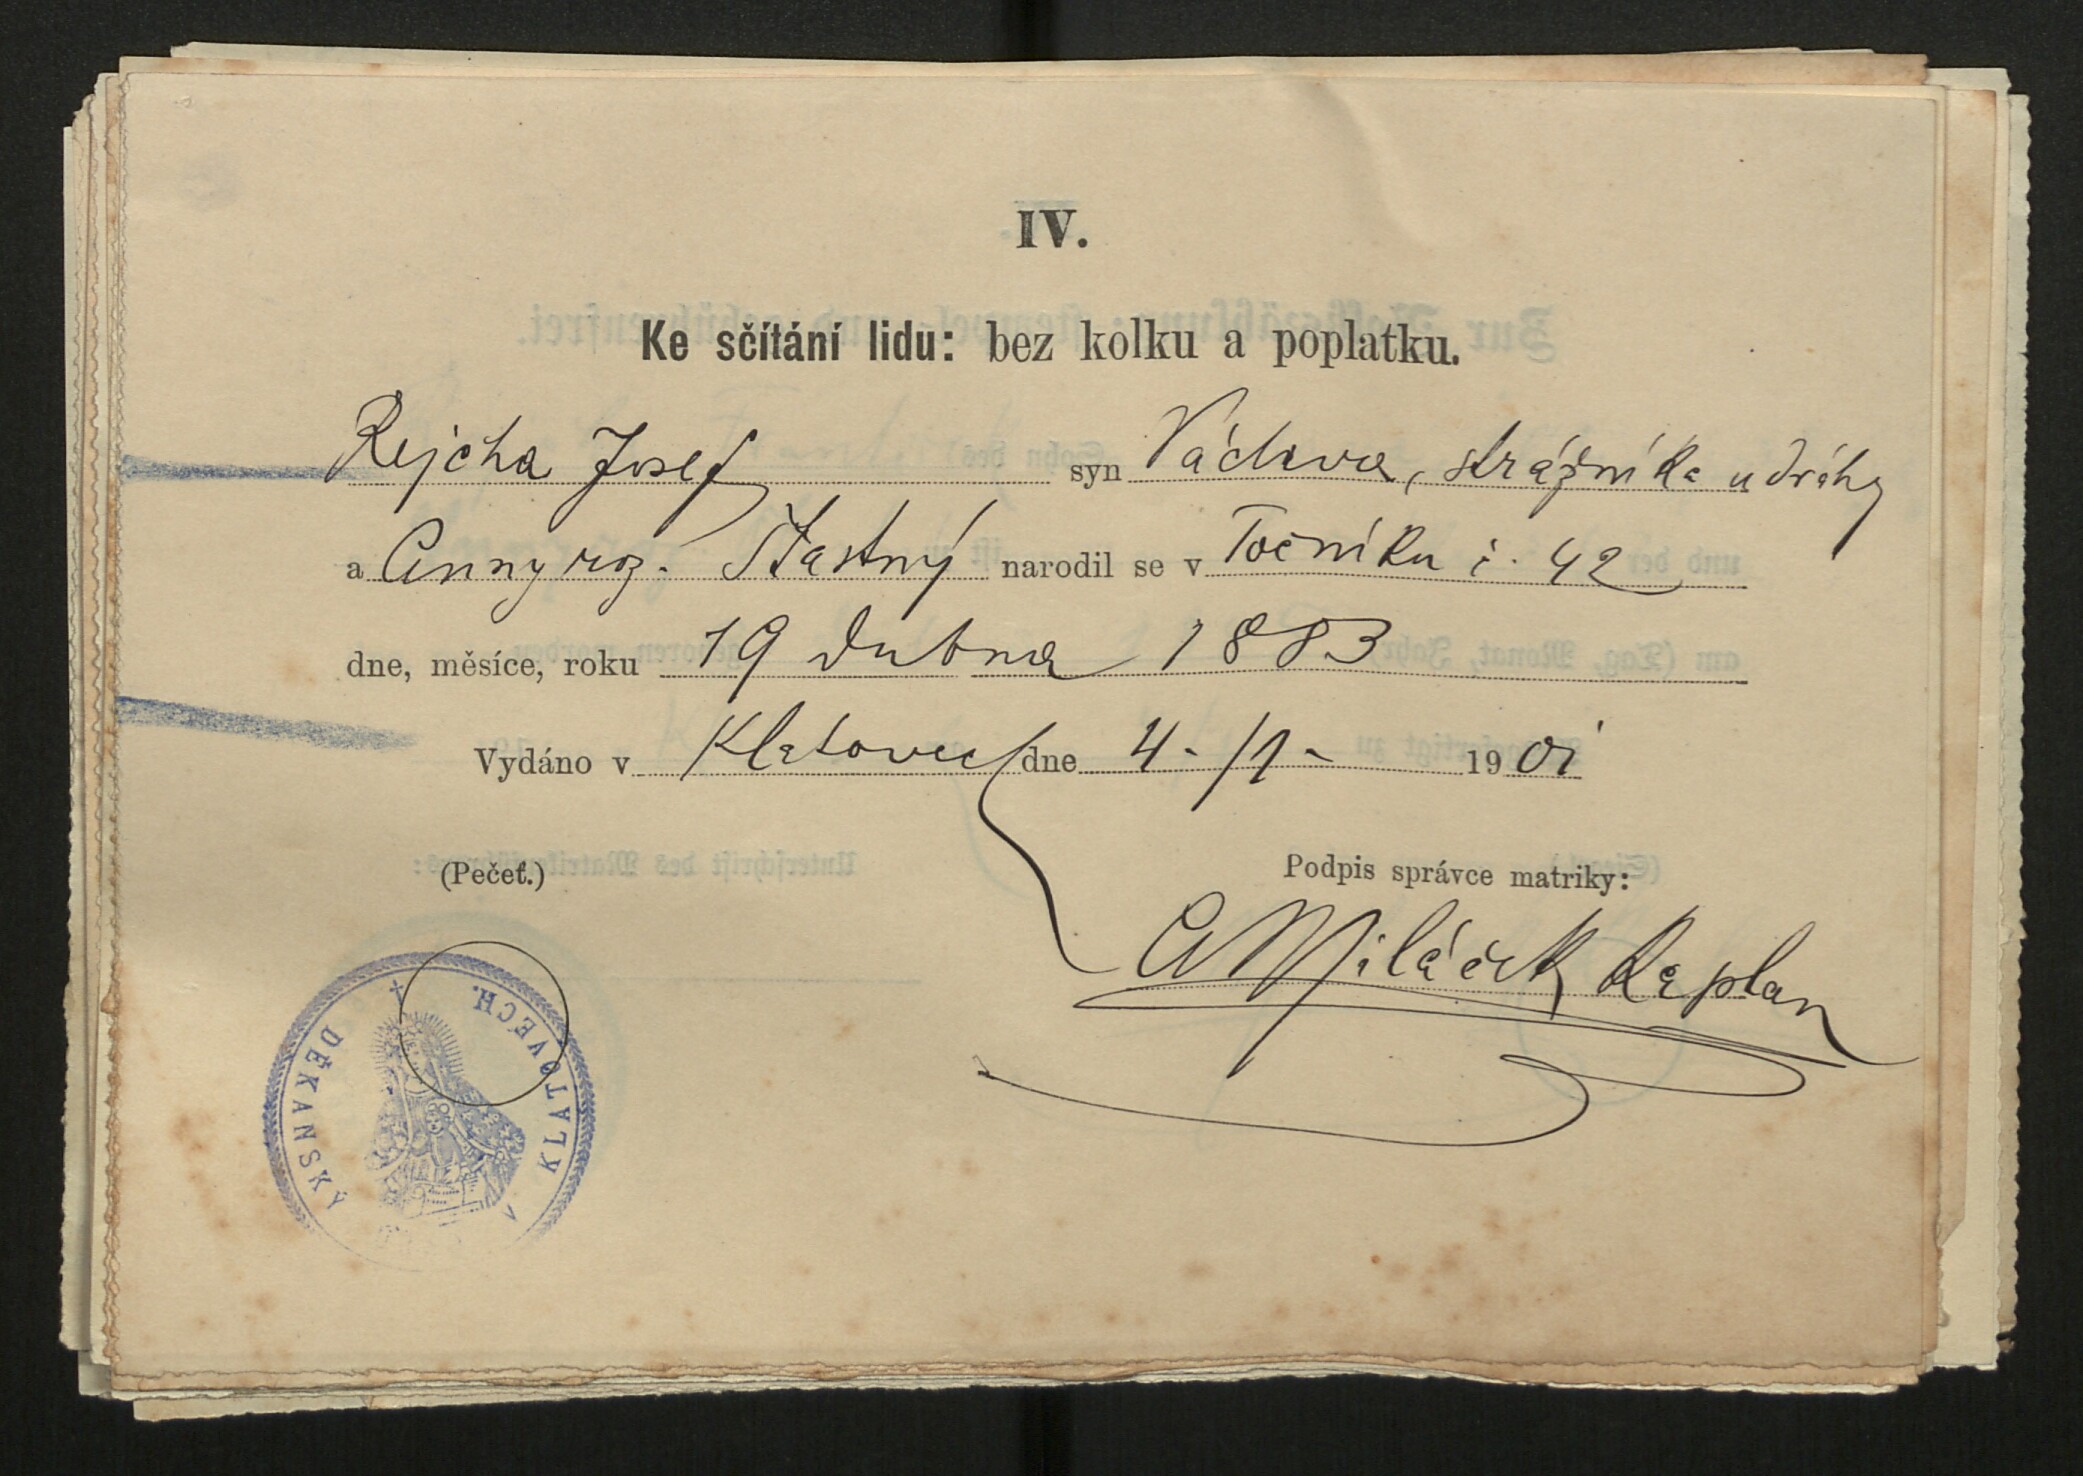 IV.
Ke sčítání lidu: bez kolku a poplatku.
Rejcha Josef syn Václava, strážníka u dráhy
a Anny roz. Šťastný narodil se v Točníku č. 42
dne, měsíce, roku 19 dubna 1883
Vydáno v Klatovech dne 4./1. 1901
(Pečeť.) Podpis správce matriky:
A Miláček kaplan
DĚKANSKÝ
V KLATOVECH.